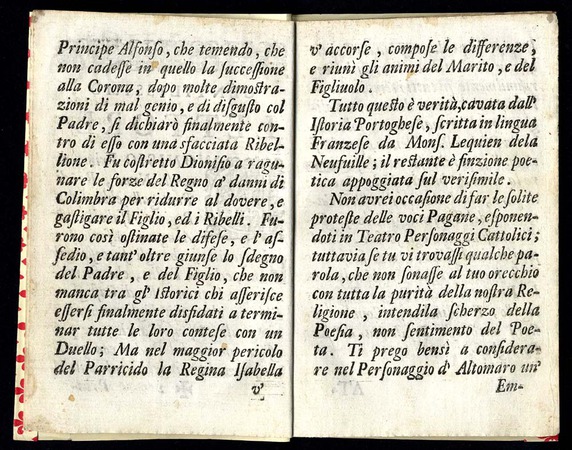 Principe Alfonſo, che temendo, che
non cadeſſe in quello la ſucceſſione
alla Corona, dopo molte dimoſtra-
zioni di mal genio, e di diſguſto col
Padre, ſi dichiarò finalmente con-
tro di eſſo con una sfacciata Ribel-
lione. Fu coſtretto Dioniſio a ragu-
nare le forze del Regno a' danni di
Colimbra per ridurre al dovere, e
gaſtigare il Figlio, ed i Ribelli. Fu-
rono così oſtinate le difeſe, e l' aſ-
ſedio, e tant' oltre giunſe lo ſdegno
del Padre, e del Figlio, che non
manca tra gl' Iſtorici chi aſſeriſce
eſſerſi finalmente disfidati a termi-
nar tutte le loro conteſe con un
Duello; Ma nel maggior pericolo
del Parricido la Regina Iſabella
v'
v' accorſe, compoſe le differenze,
e riunì gli animi del Marito, e del
Figliuolo.
Tutto queſto è verità, cavata dall'
Iſtoria Portogheſe, ſcritta in lingua
Franzeſe da Monſ. Lequien dela
Neufuille; il reſtante è finzione poe-
tica appoggiata ſul veriſimile.
Non avrei occaſione di far le ſolite
proteſte delle voci Pagane, eſponen-
doti in Teatro Perſonaggi Cattolici;
tuttavia ſe tu vi trovaſſi qualche pa-
rola, che non ſonaſſe al tuo orecchio
con tutta la purità della noſtra Re-
ligione, intendila ſcherzo della
Poeſia, non ſentimento del Poe-
ta. Ti prego bensì a conſidera-
re nel Perſonaggio d' Altomaro un'
Em-